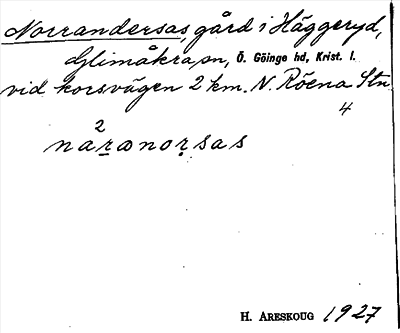 Norrandersas, gård i Häggeryd,
Glimåkra sn, Ö. Göinge hd, Krist. l.
vid korsvägen 2 km. N. Röena Stn
4
2
naranorsas
H. ARESKOUG 1927